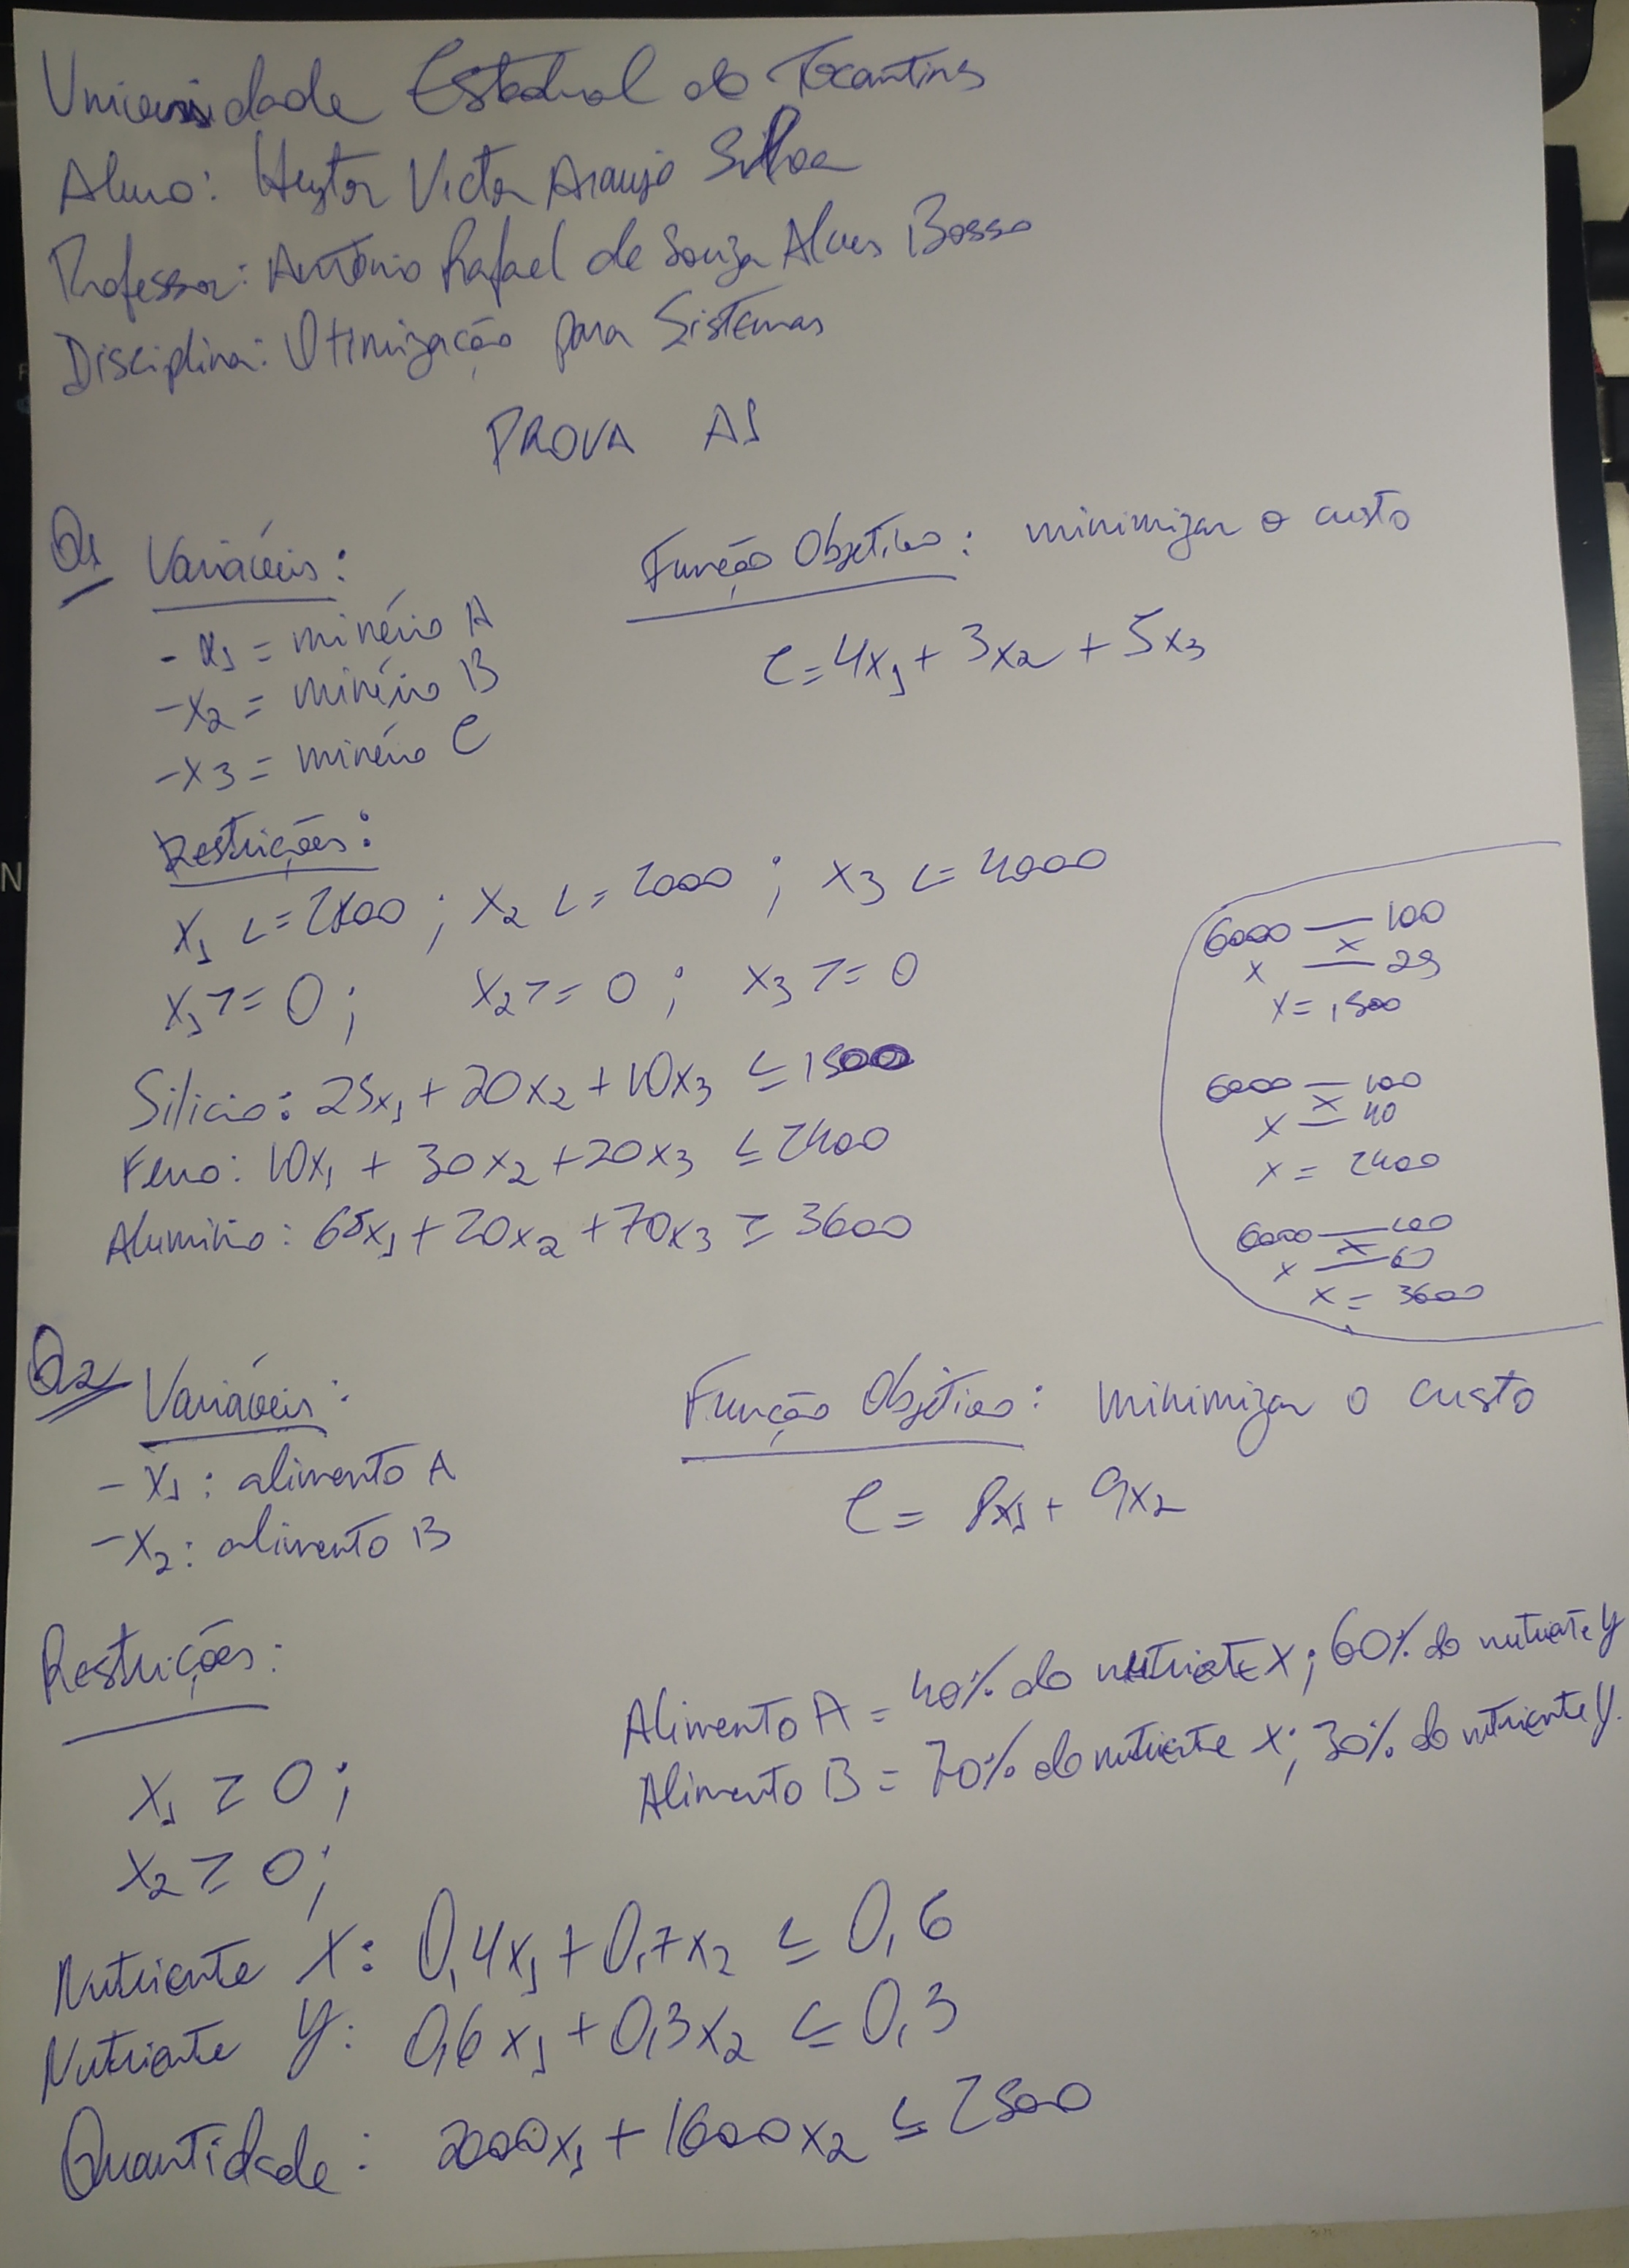 Universidade Estadual do Tocantins
Aluno: Heytor Victor Araujo Silva
Professor: Antônio Rafael de Souza Alves Bosso
Disciplina: Otimização para Sistemas
PROVA A1
Q1
Variáveis:
- x1 = minério A
- x2 = minério B
- x3 = minério C
Função Objetivo: minimizar o custo
C = 4x1 + 3x2 + 5x3
Restrições:
x1 <= ; x2 <= 2000 ; x3 <= 4000
x1 >= 0 ; x2 >= 0 ; x3 >= 0
Silicio: 25x1 + 20x2 + 10x3 ≤ 1500
Ferro: 10x1 + 30x2 + 20x3 ≤ 2400
Aluminio: 65x1 + 20x2 + 70x3 ≥ 3600
6000 — 100
x — 25
x = 1500
6000 — 100
x — 40
x = 2400
6000 — 100
x — 60
x = 3600
Q2
Variáveis:
- x1: alimento A
- x2: alimento B
Função Objetivo: minimizar o custo
C = 8x1 + 9x2
Restrições:
Alimento A = 40% do nutriente X; 60% do nutriente Y
Alimento B = 70% do nutriente X; 30% do nutriente Y.
x1 ≥ 0;
x2 ≥ 0;
Nutriente X: 0,4x1 + 0,7x2 ≤ 0,6
Nutriente Y: 0,6x1 + 0,3x2 ≤ 0,3
Quantidade: 2000x1 + 1600x2 ≤ 2500